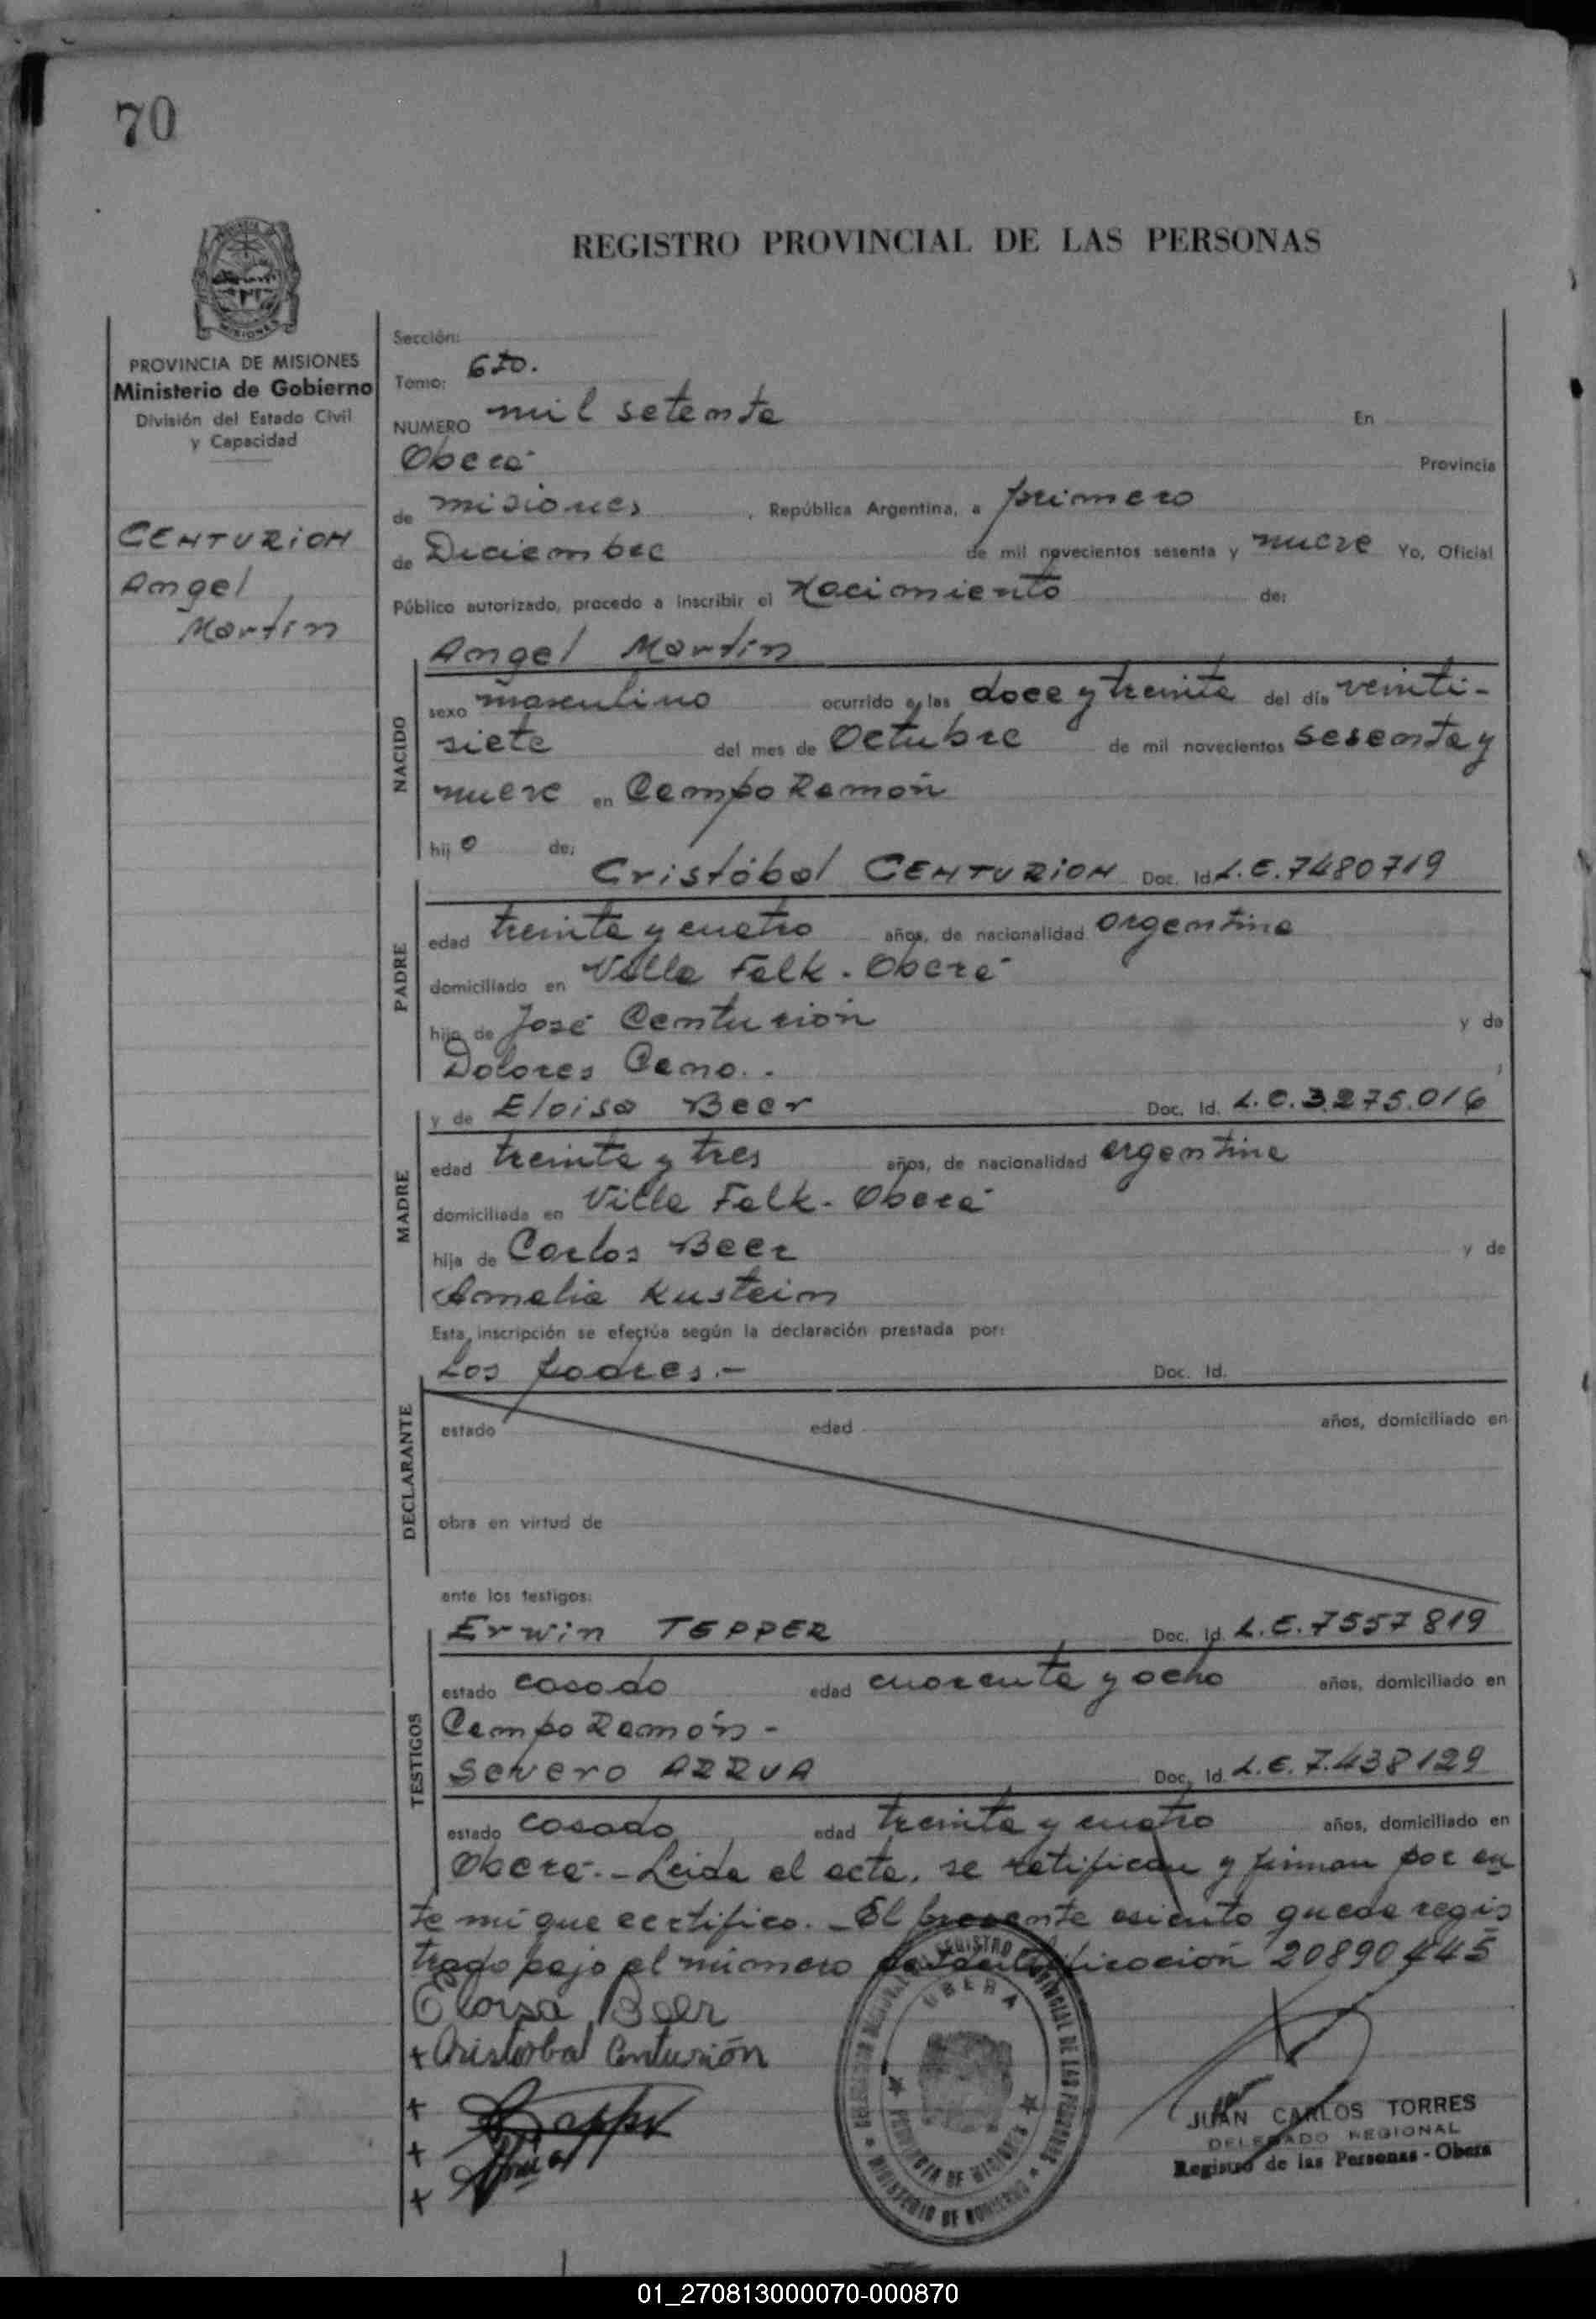 70
REGISTRO PROVINCIAL DE LAS PERSONAS
MISIONES
PROVINCIA DE MISIONES
Ministerio de Gobierno
División del Estado Civil
y Capacidad
CENTURION
Angel
Martín
Sección:
Tomo: 6to.
NUMERO mil setenta En
Oberá Provincia
de misiones, República Argentina, a primero
de Diciembre de mil novecientos sesenta y nueve Yo, Oficial
Público autorizado, procedo a inscribir el Nacimiento de:
Angel Martín
NACIDO
sexo masculino ocurrido a las doce y treinta del día veinti-
siete del mes de Octubre de mil novecientos sesenta y
nueve en Campo Ramón
hijo de:
Cristóbal CENTURION Doc. Id. L.E. 7480719
PADRE
edad treinta y cuatro años, de nacionalidad argentina
domiciliado en Villa Falk - Oberá
hijo de José Centurión y de
Dolores Cano..
y de Eloisa Beer Doc. Id. L.C. 3.275.016
MADRE
edad treinta y tres años, de nacionalidad argentina
domiciliada en Villa Falk - Oberá
hija de Carlos Beer y de
Amalia Kustein
Esta inscripción se efectúa según la declaración prestada por:
Los padres.- Doc. Id.
DECLARANTE
estado edad años, domiciliado en
obra en virtud de
ante los testigos:
Erwin TEPPER Doc. Id. L.E. 7557819
TESTIGOS
estado casado edad cuarenta y ocho años, domiciliado en
Campo Ramón -
Severo ARRUA Doc. Id. L.E. 7.438129
estado casado edad treinta y cuatro años, domiciliado en
Oberá.- Leida el acta, se ratifican y firman por an
te mi que certifico. - El presente asiento queda regis
trado bajo el número de identificación 20890445
Eloisa Beer
+ Cristobal Centurión
+
+
+
REGISTRO PROVINCIAL DE LAS PERSONAS
OBERA
PROVINCIA DE MISIONES
MINISTERIO DE GOBIERNO
JUAN CARLOS TORRES
DELEGADO REGIONAL
Registro de las Personas - Obera
01_270813000070-000870